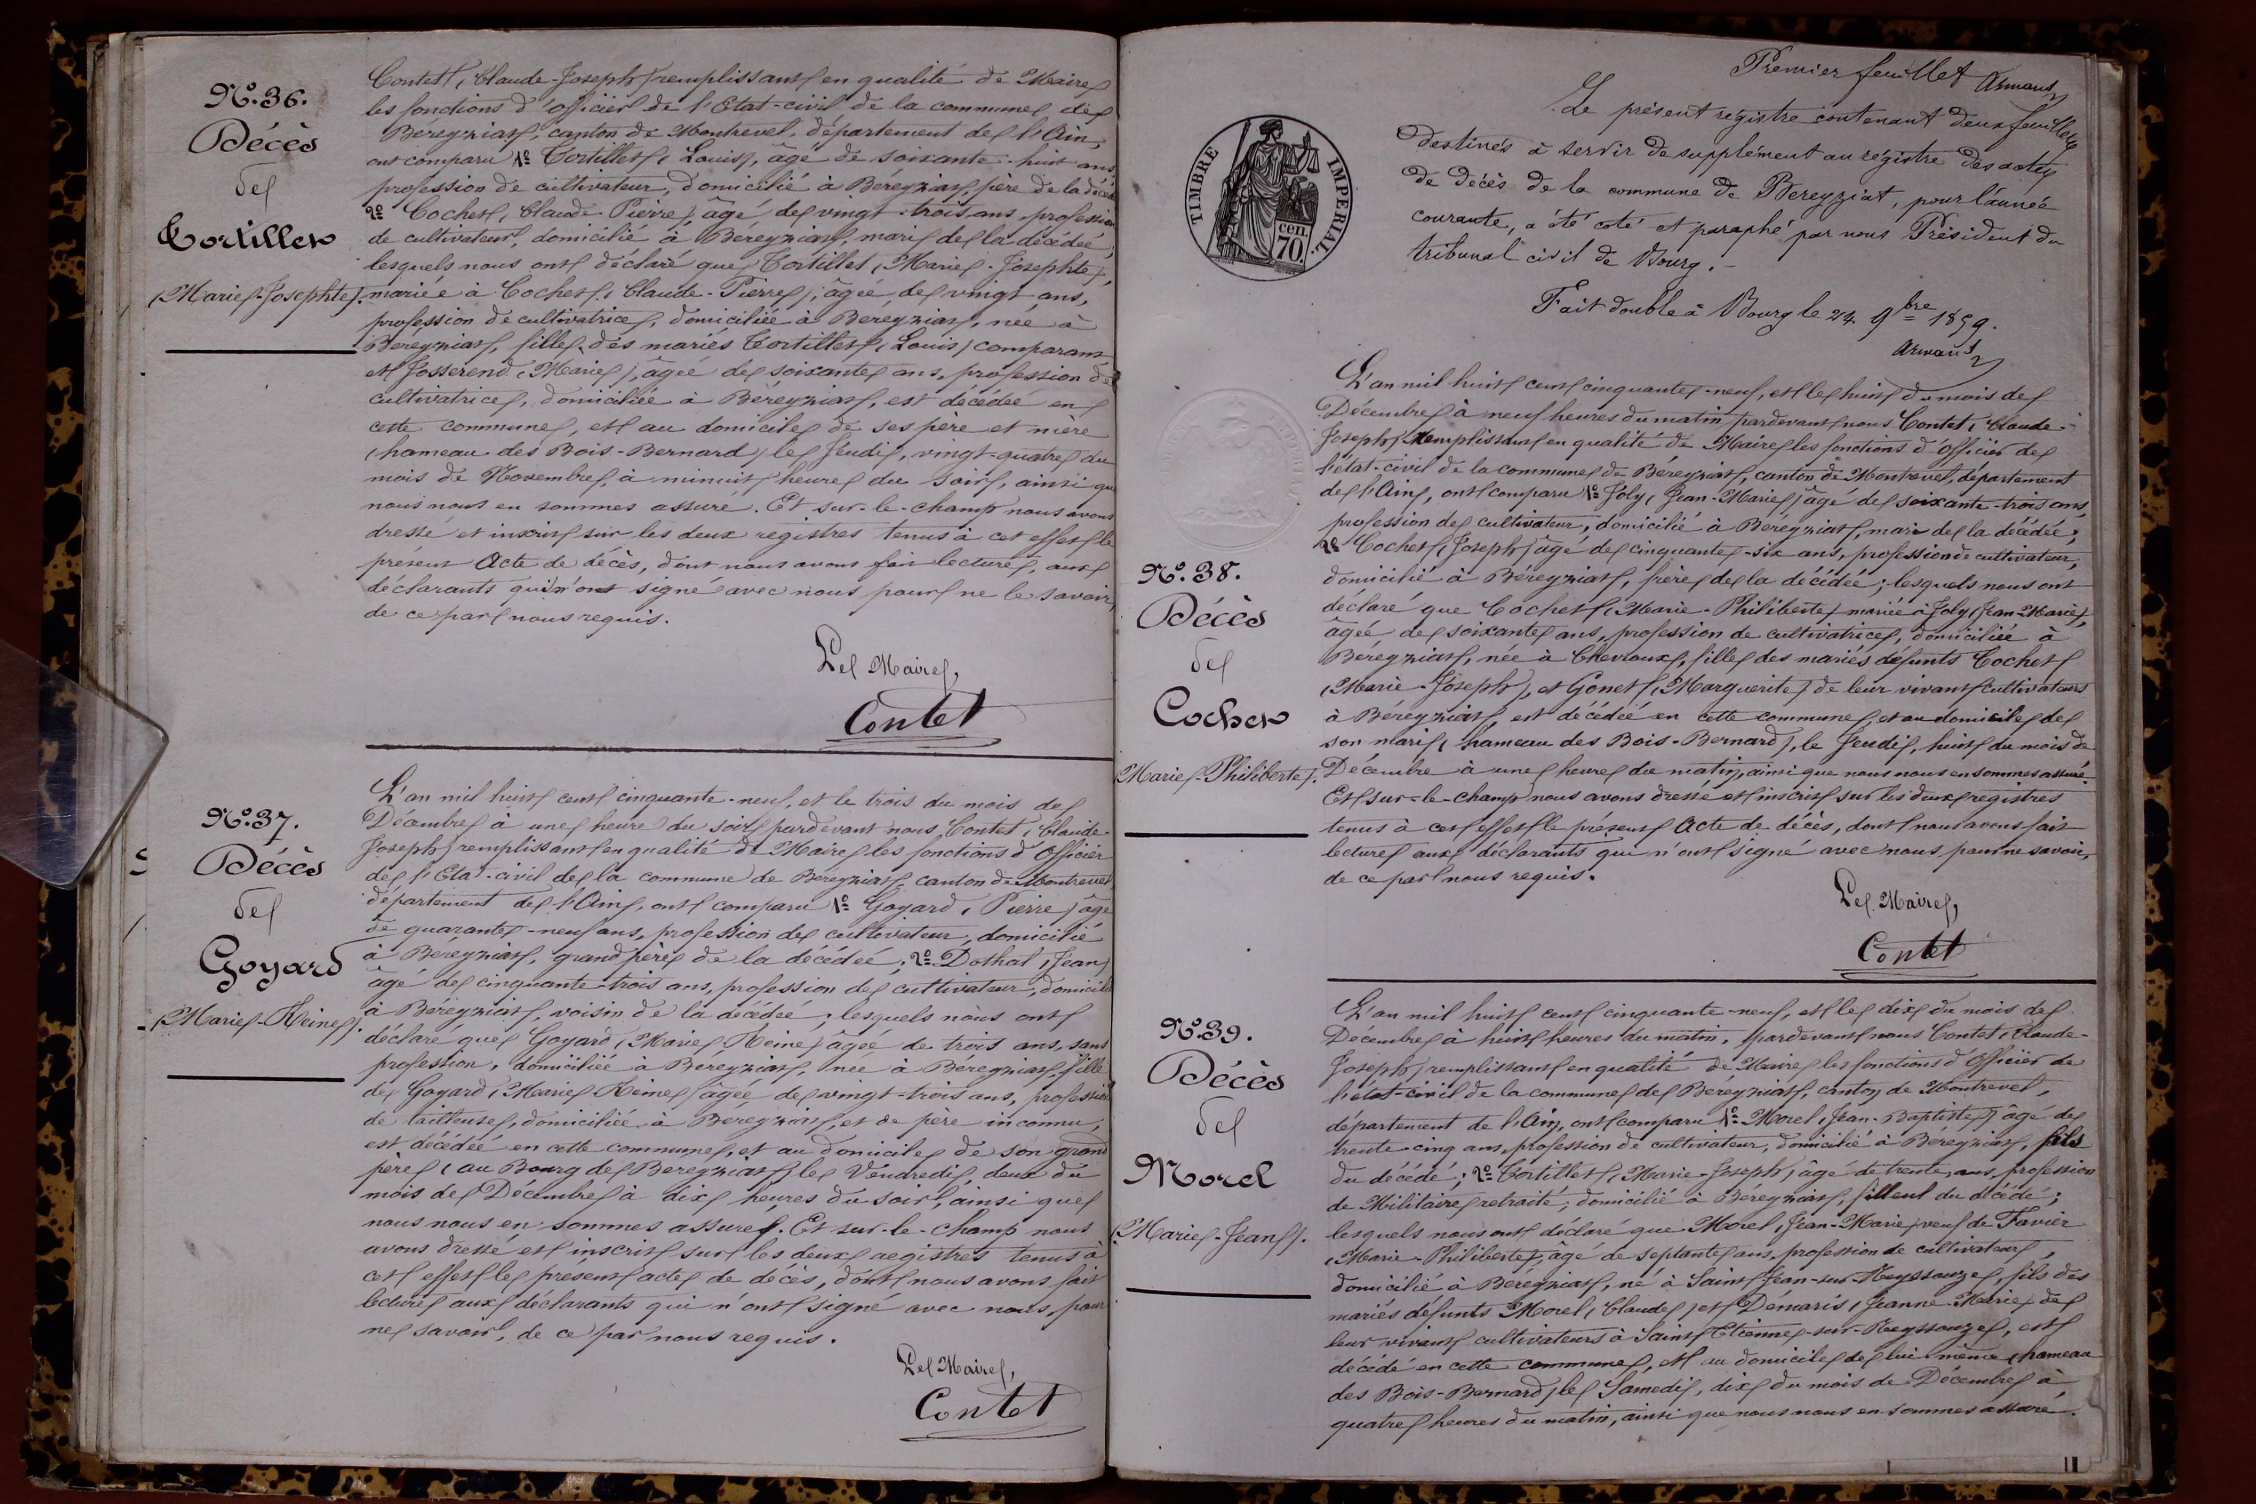 N.º 36.
Décès
de
Tortillet
(Marie-Josephte).
Contet (Claude-Joseph) remplissant en qualité de Maire
les fonctions d'officier de l'Etat-civil de la commune de
Béreyziat, canton de Montrevel, département de l'Ain,
ont comparu 1º Tortillet (Louis), âgé de soixante-huit ans,
profession de cultivateur, domicilié à Béreyziat, père de la décédée
2º Cochet (Claude-Pierre), âgé de vingt-trois ans, profession
de cultivateur, domicilié à Béreyziat, mari de la décédée,
lesquels nous ont déclaré que Tortillet (Marie-Josephte),
mariée à Cochet (Claude-Pierre), âgée de vingt ans,
profession de cultivatrice, domiciliée à Béreyziat, née à
Béreyziat, fille des mariés Tortillet (Louis) comparant
et Josserend (Marie), âgée de soixante ans, profession de
cultivatrice, domiciliée à Béreyziat, est décédée en
cette commune, et au domicile de ses père et mère
(hameau des Bois-Bernard) le Jeudi, vingt-quatre du
mois de Novembre, à minuit heures du soir, ainsi que
nous nous en sommes assuré. Et sur-le-champ nous avons
dressé et inscrit sur les deux registres tenus à cet effet le
présent Acte de décès, dont nous avons fait lecture, aux
déclarants qui n'ont signé avec nous pour ne le savoir,
de ce par nous requis.
Le Maire,
Contet
N.º 37.
Décès
de
Goyard
(Marie-Reine).
L'an mil huit cent cinquante-neuf, et le trois du mois de
Décembre à une heure du soir pardevant nous Contet (Claude-
Joseph) remplissant en qualité de Maire les fonctions d'Officier
de l'Etat-civil de la commune de Béreyziat, canton de Montrevel
département de l'Ain, ont comparu 1º Goyard (Pierre) âgé
de quarante-neuf ans, profession de cultivateur, domicilié
à Béreyziat, grand père de la décédée; 2º Dothal (Jean)
âgé de cinquante-trois ans, profession de cultivateur, domicilié
à Béreyziat, voisin de la décédée, lesquels nous ont
déclaré que Goyard (Marie Reine) âgée de trois ans, sans
profession, domiciliée à Béreyziat, née à Béreyziat, fille
de Goyard (Marie Reine) âgée de vingt-trois ans, profession
de tailleuse, domiciliée à Béreyziat, et de père inconnu,
est décédée en cette commune, et au domicile de son grand
père (au Bourg de Béreyziat) le Vendredi, deux du
mois de Décembre à dix heures du soir, ainsi que
nous nous en sommes assuré. Et sur-le-champ nous
avons dressé et inscrit sur les deux registres tenus à
cet effet le présent acte de décès, dont nous avons fait
lecture aux déclarants qui n'ont signé avec nous, pour
ne savoir, de ce par nous requis.
Le Maire,
Contet
Premier feuillet Armand
Le présent registre contenant deux feuillets
destinés à servir de supplément au registre des actes
de décès de la commune de Bereyziat, pour l'année
courante, a été coté et paraphé par nous Président du
tribunal civil de Bourg.-
Fait double à Bourg le 24 9bre 1859.
Armand
TIMBRE IMPERIAL.
cen.
70.
N.º 38.
Décès
de
Cochet
(Marie-Philiberte).
L'an mil huit cent cinquante-neuf, et le huit du mois de
Décembre à neuf heures du matin pardevant nous Contet (Claude-
Joseph) remplissant en qualité de Maire les fonctions d'Officier de
l'état-civil de la commune de Béreyziat, canton de Montrevel, département
de l'Ain, ont comparu 1º Joly (Jean-Marie) âgé de soixante-trois ans
profession de cultivateur, domicilié à Béreyziat, mari de la décédée;
2º Cochet (Joseph) âgé de cinquante-six ans, profession de cultivateur,
domicilié à Béreyziat, frère de la décédée; lesquels nous ont
déclaré que Cochet (Marie-Philiberte) mariée à Joly (Jean-Marie),
âgée de soixante ans, profession de cultivatrice, domiciliée à
Béreyziat, née à Chevroux, fille des mariés défunts Cochet
(Marie-Joseph), et Gonet (Marguerite) de leur vivant cultivateurs
à Béreyziat, est décédée en cette commune, et au domicile de
son mari, (hameau des Bois-Bernard), le Jeudi, huit du mois de
Décembre à une heure du matin, ainsi que nous nous en sommes assuré.
Et sur-le-champ nous avons dressé et inscrit sur les deux registres
tenus à cet effet le présent Acte de décès, dont nous avons fait
lecture aux déclarants qui n'ont signé avec nous, pour ne savoir,
de ce par nous requis.
Le Maire,
Contet
N.º 39.
Décès
de
Morel
(Marie-Jean).
L'an mil huit cent cinquante-neuf, et le dix du mois de
Décembre à huit heures du matin, pardevant nous Contet (Claude-
Joseph) remplissant en qualité de Maire les fonctions d'Officier de
l'état-civil de la commune de Béreyziat, canton de Montrevel,
département de l'Ain, ont comparu 1º Morel (Jean-Baptiste) âgé de
trente-cinq ans, profession de cultivateur, domicilié à Béreyziat, fils
du décédé; 2º Tortillet (Marie-Joseph) âgé de trente ans, profession
de Militaire retraité, domicilié à Béreyziat, filleul du décédé;
lesquels nous ont déclaré que Morel (Jean-Marie) veuf de Favier
(Marie-Philiberte), âgé de septante ans, profession de cultivateur,
domicilié à Béreyziat, né à Saint Jean-sur-Reyssouze, fils des
mariés défunts Morel (Claude) et Démaris (Jeanne-Marie) de
leur vivant cultivateurs à Saint Etienne-sur-Reyssouze, est
décédé en cette commune, et au domicile de lui-même (hameau
des Bois-Bernard) le Samedi, dix du mois de Décembre à
quatre heures du matin, ainsi que nous nous en sommes assuré.